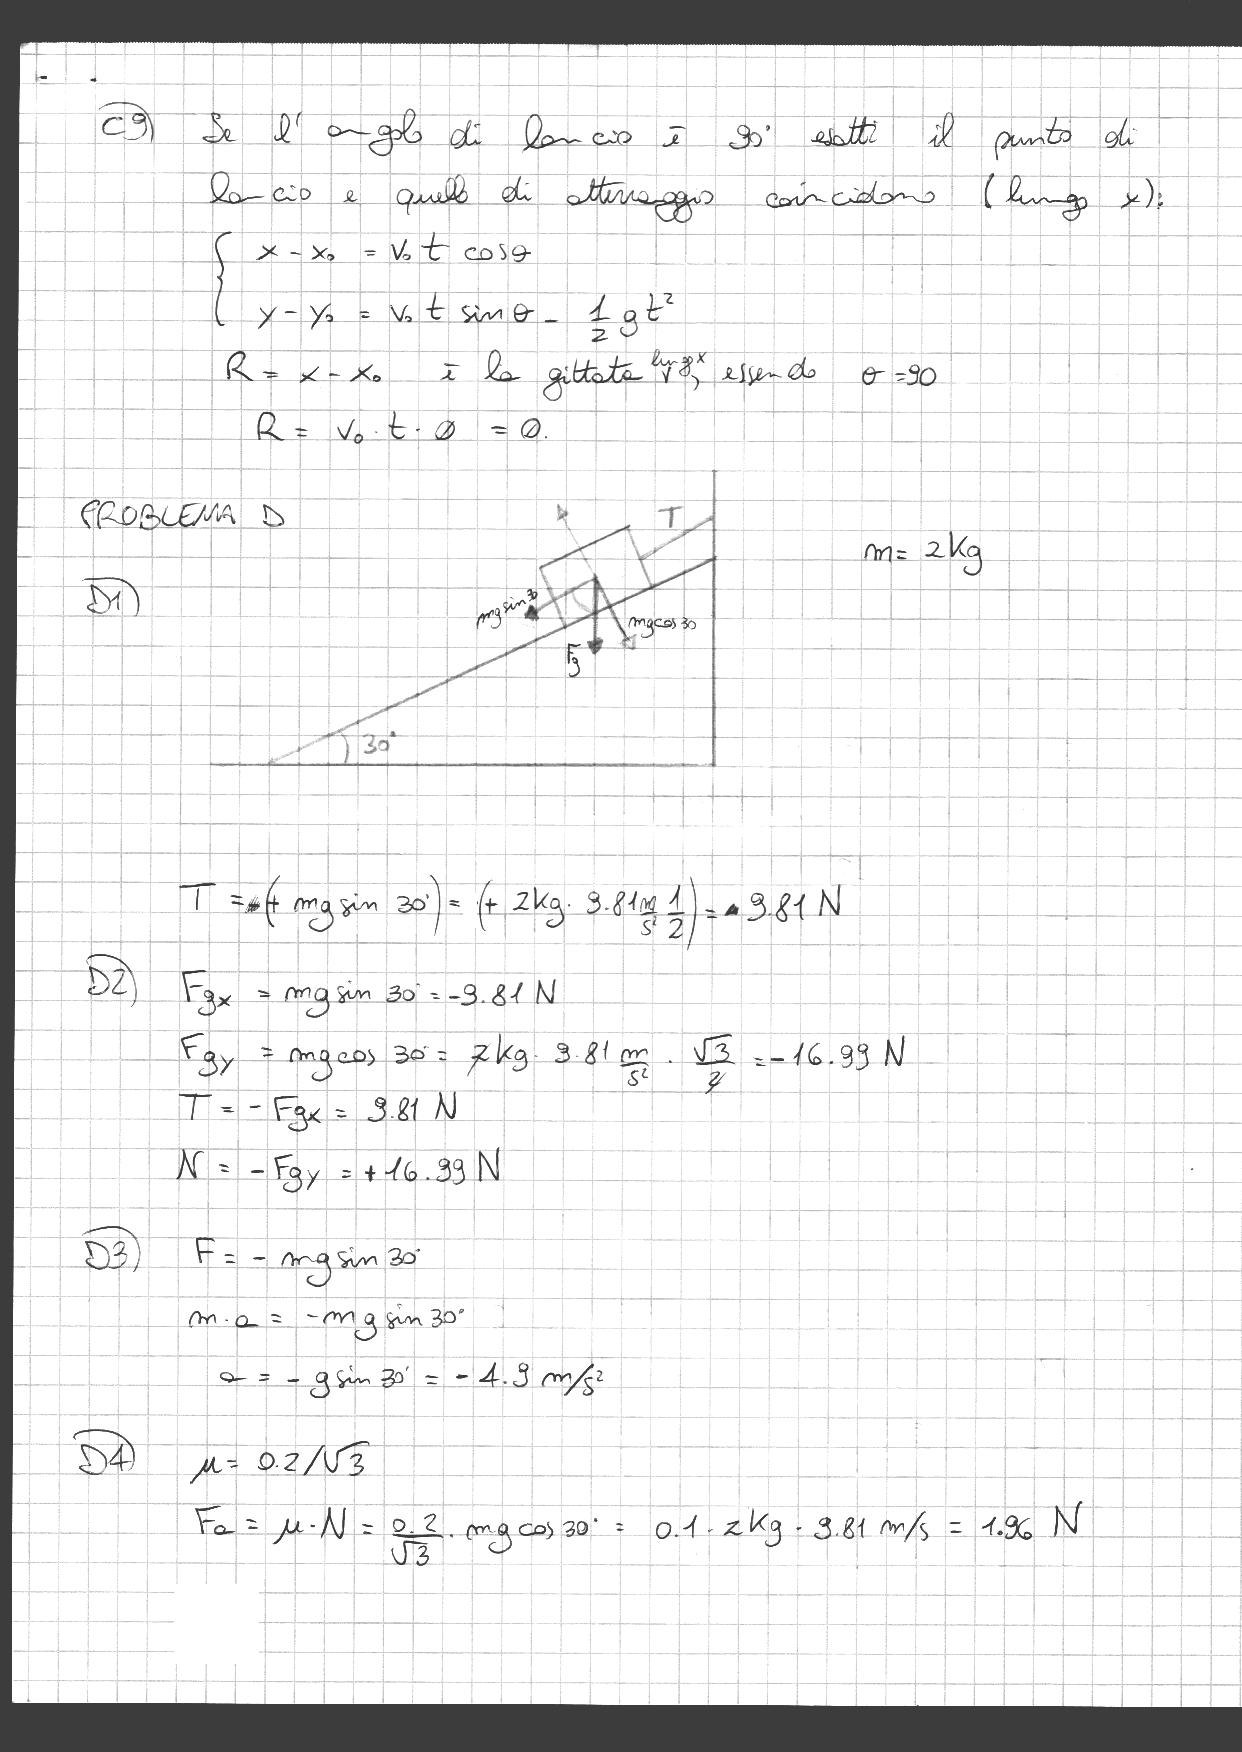 C9) Se l'angolo di lancio è 90° esatti il punto di
lancio e quello di atterraggio coincidono (lungo x):
x - x₀ = v₀ t cosθ
y - y₀ = v₀ t sinθ - 1/2 g t²
R = x - x₀ è la gittata lungo x, essendo θ = 90
R = v₀ · t · 0 = 0.
PROBLEMA D
D1)
T
m = 2 kg
mg sin 30
mg cos 30
Fg
30°
T = (+ mg sin 30°) = (+ 2kg · 9.81 m/s² 1/2) = 9.81 N
D2) Fgx = mg sin 30° = -9.81 N
Fgy = mg cos 30° = 2kg · 9.81 m/s² · √3/2 = -16.99 N
T = - Fgx = 9.81 N
N = - Fgy = +16.99 N
D3) F = - mg sin 30°
m · a = - mg sin 30°
a = - g sin 30° = - 4.9 m/s²
D4) μ = 0.2/√3
Fa = μ · N = 0.2/√3 · mg cos 30° = 0.1 · 2kg · 9.81 m/s = 1.96 N